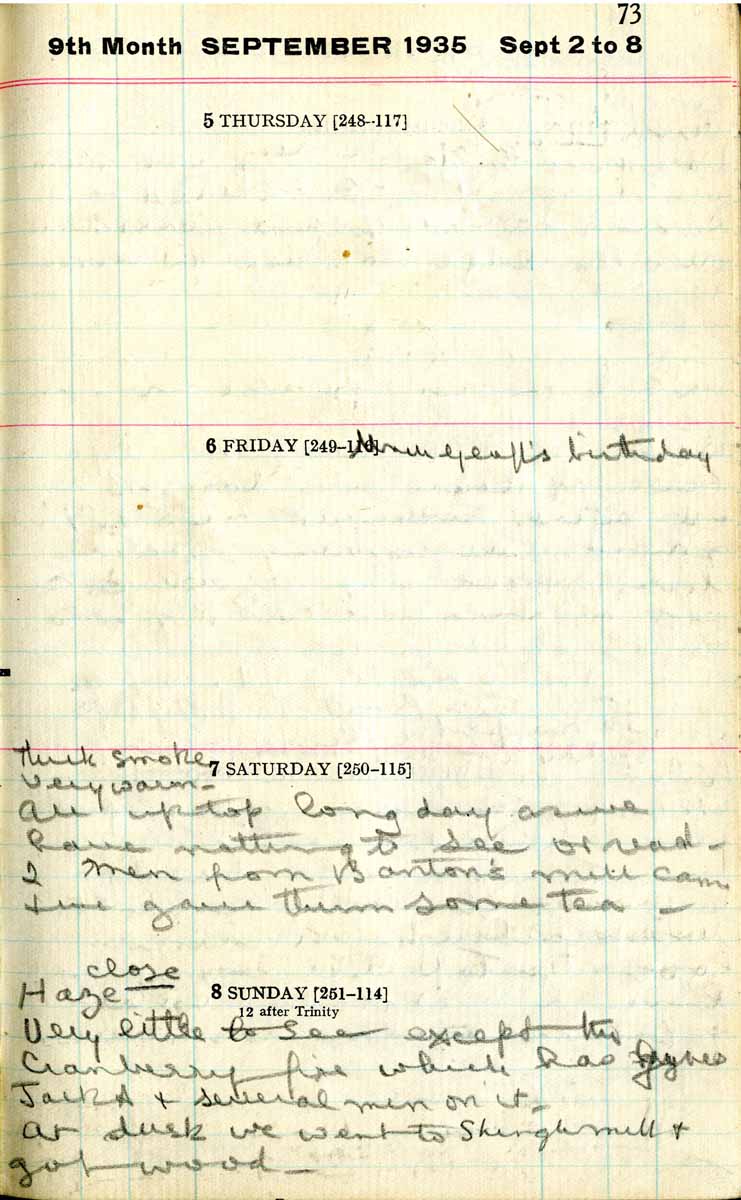 73
9th Month SEPTEMBER 1935 Sept 2 to 8
5 THURSDAY [248-117]
6 FRIDAY [249-116] birthday
Thick smoke
7 SATURDAY [250-115]
Very warm -
All up top long day as we
have nothing to see or read -
2 Men from Banton's mill came
+ we gave them some tea -
close
Haze
8 SUNDAY [251-114]
12 after Trinity
Very little to see except the
Cranberry fire which has
Jack A + several men on it -
At dusk we went to Shinglemill +
got wood -